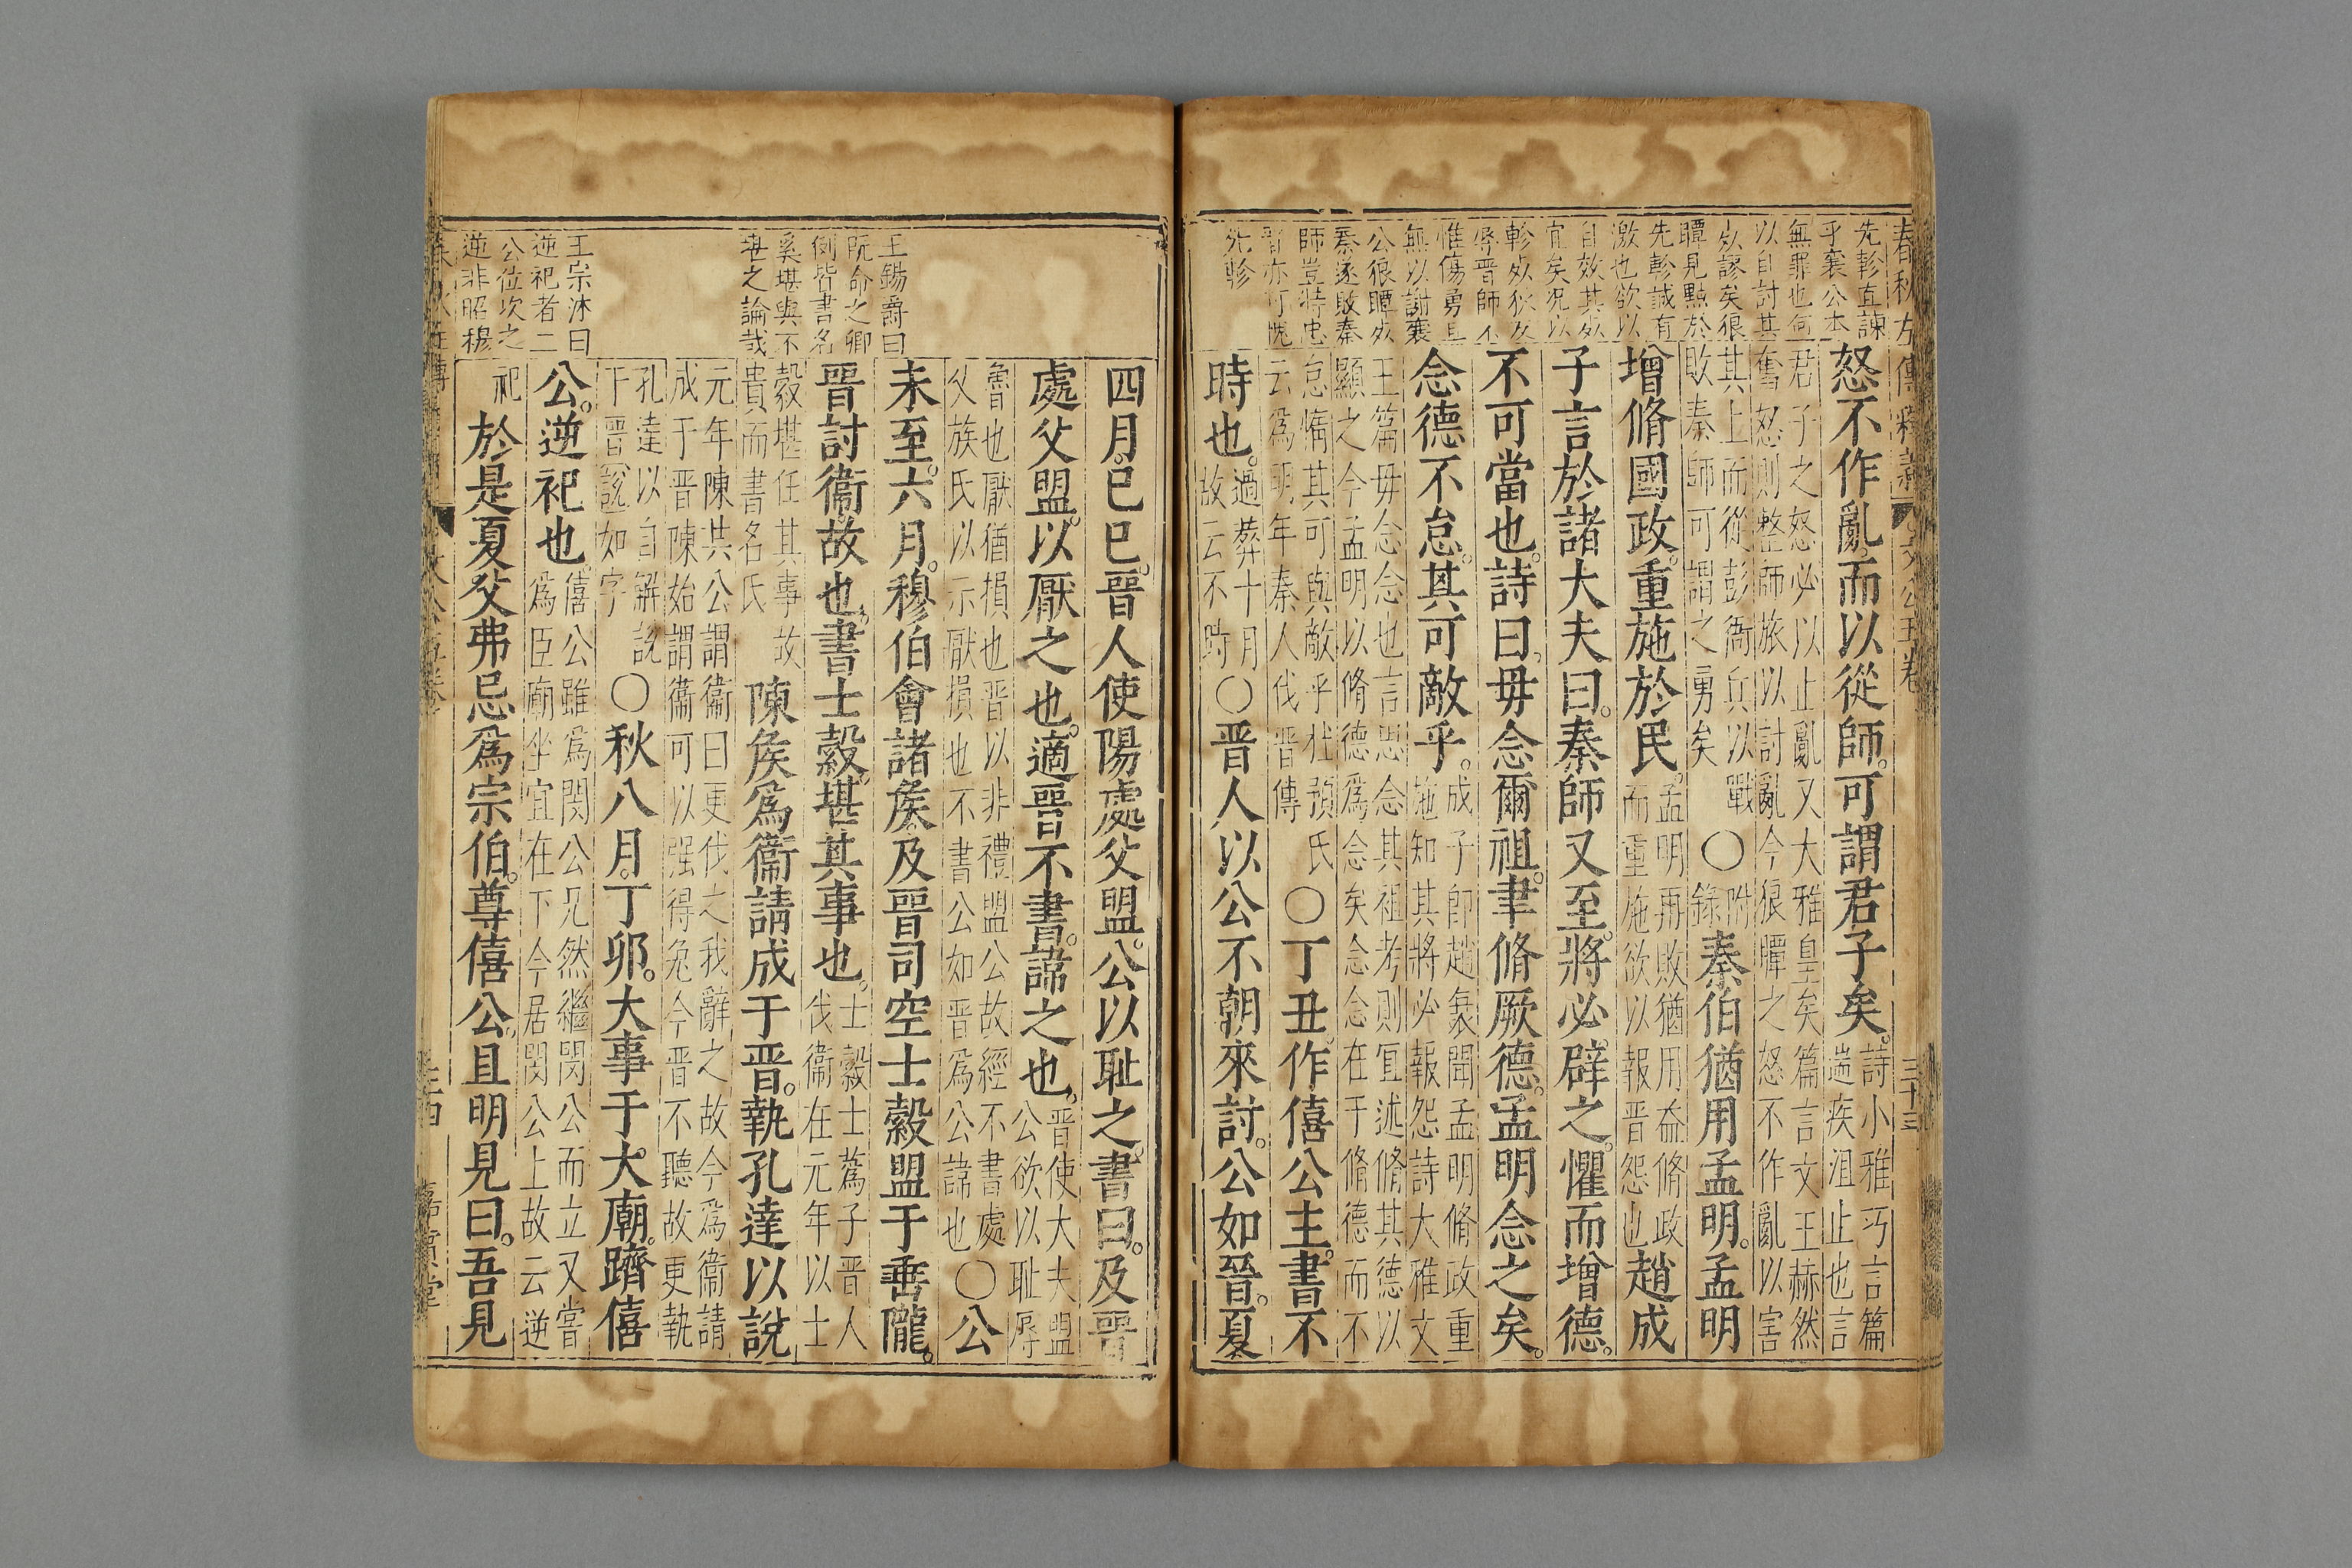 春秋左傳釋義 文公五卷 三十三
先軫直諫
乎襄公本
無罪也何
以自討其
死謬矣狼
瞫見黜於
先軫誠有
激也欲以
自效其死
宜矣况以
軫死狄及
辱晉師不
惟傷勇且
無以謝襄
公狼瞫死
秦遂敗秦
師豈特忠
晉亦可愧
先軫
怒不作亂。而以從師。可謂君子矣。詩小雅巧言篇
遄疾沮止也言
君子之怒必以止亂又大雅皇矣篇言文王赫然
奮怒則整師旅以討亂今狼瞫之怒不作亂以害
其上而從彭衙兵以戰
敗秦師可謂之勇矣
○附錄秦伯猶用孟明。孟明
增脩國政。重施於民。孟明再敗猶用益脩政
而重施欲以報晉怨也
趙成
子言於諸大夫曰。秦師又至。將必辟之。懼而增德。
不可當也。詩曰。毋念爾祖。聿脩厥德。孟明念之矣。
念德不怠。其可敵乎。成子卽趙衰聞孟明脩政重
施知其將必報怨詩大雅文
王篇毋念念也言思念其祖考則宜述脩其德以
顯之今孟明以脩德爲念矣念念在于脩德而不
怠惰其可與敵乎杜預氏
云爲明年秦人伐晉傳
○丁丑。作僖公主。書不
時也。過葬十月
故云不時
○晉人以公不朝來討。公如晉。夏
王錫爵曰
阮命之卿
例皆書名
奚堪與不
堪之論哉
王宗沐曰
逆祀者二
公位次之
逆非昭穆
四月。己巳。晉人使陽處父盟。公以耻之。書曰。及晉
處父盟。以厭之也。適晉不書。諱之也。晉使大夫盟
公欲以耻辱
魯也厭猶損也晉以非禮盟公故經不書處
父族氏以示厭損也不書公如晉爲公諱也
○公
未至。六月。穆伯會諸矦。及晉司空士縠盟于垂隴。
晉討衞故也。書士縠。堪其事也。士縠士蔿子晉人
伐衞在元年以士
縠堪任其事故
貴而書名氏
陳矦爲衞請成于晉。執孔達以說
元年陳共公謂衞曰更伐之我辭之故今爲衞請
成于晉陳始謂衞可以强得免今晉不聽故更執
孔達以自解說
下晉說如字
○秋八月。丁卯。大事于大廟。躋僖
公。逆祀也。僖公雖爲閔公兄然繼閔公而立又嘗
爲臣廟坐宜在下今居閔公上故云逆
祀
於是夏父弗忌爲宗伯。尊僖公。且明見曰。吾見
文公五卷
三十四